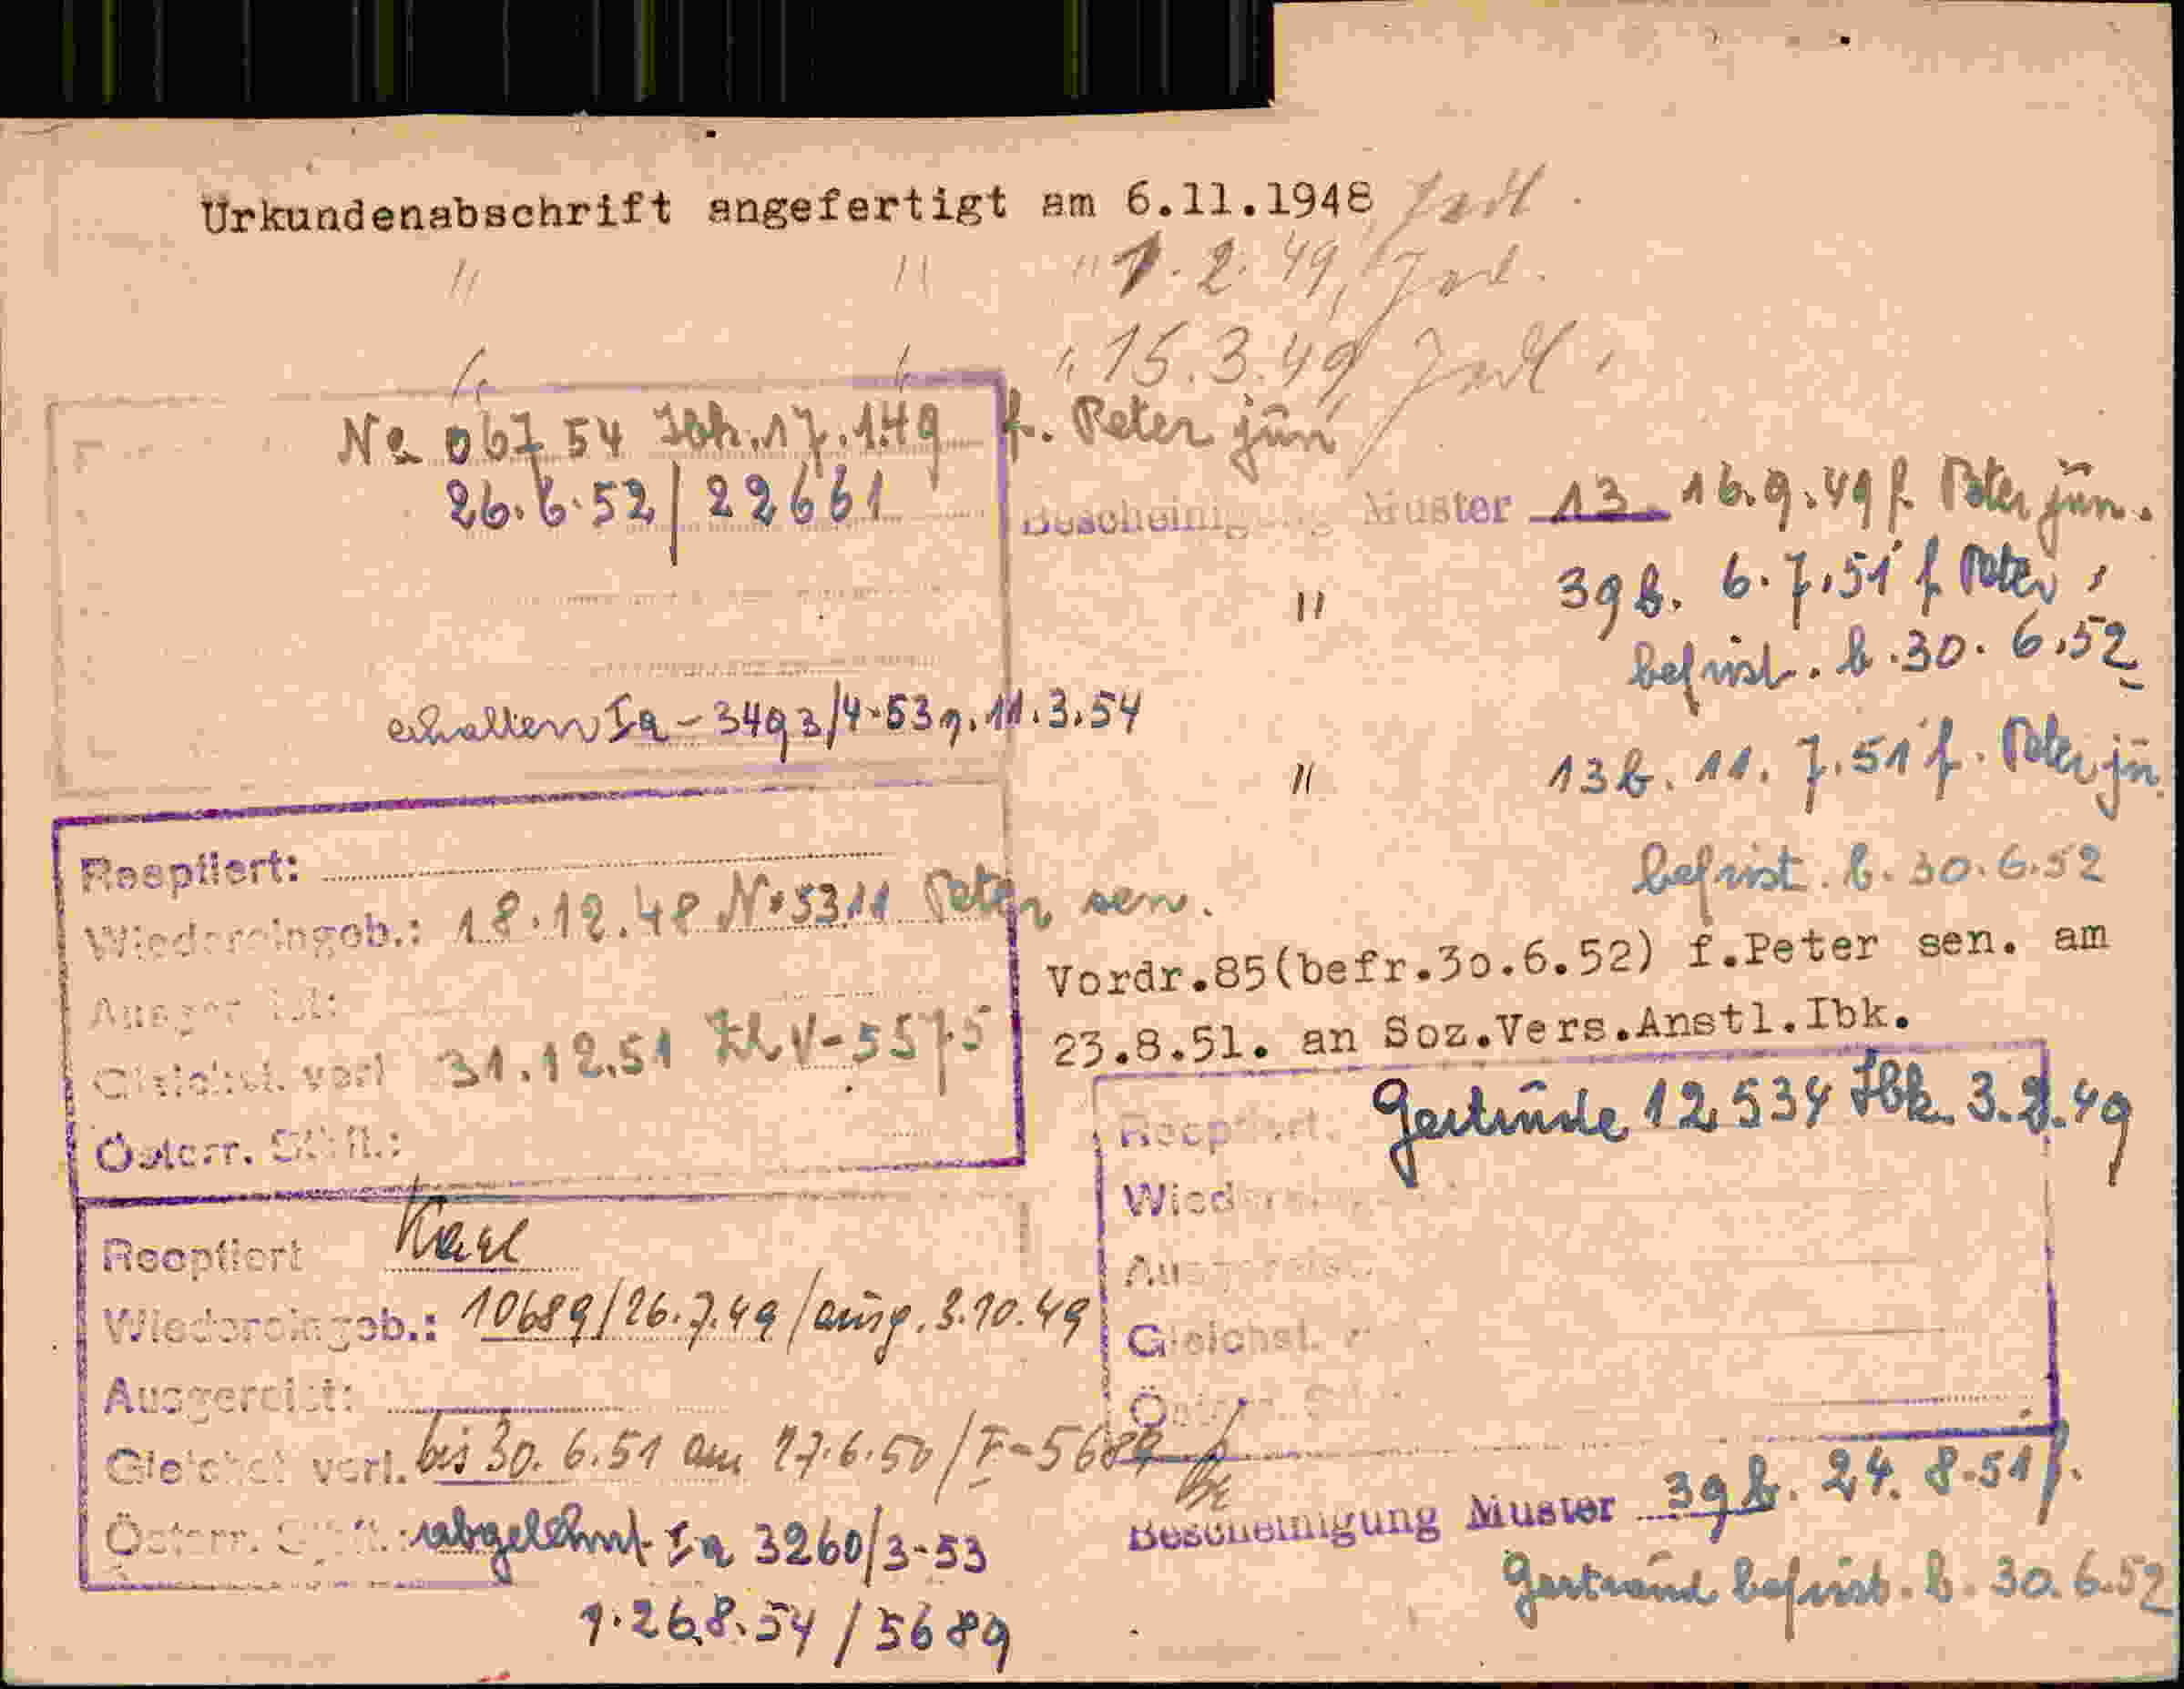 Urkundenabschrift angefertigt am 6.11.1948
" " " 1.2.49,
" " " 15.3.49
No 06754 Ibk. 17.1.49 f. Peter jun
26.6.52/22661
erhalten Ia-3493/4-53 v. 11.3.54
Bescheinigung Muster 13 16.9.49 f. Peter jun.
" 39b. 6.7.51 f Peter,
befrist. b. 30.6.52
" 13b. 11.7.51 f. Peter jun.
befrist. b. 30.6.52
Reoptiert:
Wiedereingeb.: 18.12.48 No 5311 Peter sen.
Ausgereist:
Gleichst. verl. 31.12.51 V-5575
Österr. Stbft.:
Vordr.85(befr.30.6.52) f.Peter sen. am
23.8.51. an Soz.Vers.Anstl.Ibk.
Reoptiert: Gertrude 12534 Ibk. 3.9.49
Wiedereingeb.:
Ausgereist:
Gleichst. verl.
Österr. Stbft.:
Reoptiert Karl
Wiedereingeb.: 10689/26.7.49/ausg. 3.10.49
Ausgereist:
Gleichst. verl. bis 30.6.51 am 27.6.50/F-5689
Österr. Stbft.: abgelehnt Ia 3260/3-53
v. 26.8.54/5689
Bescheinigung Muster 39b. 24.8.51 f.
Gertraud befrist. b. 30.6.52